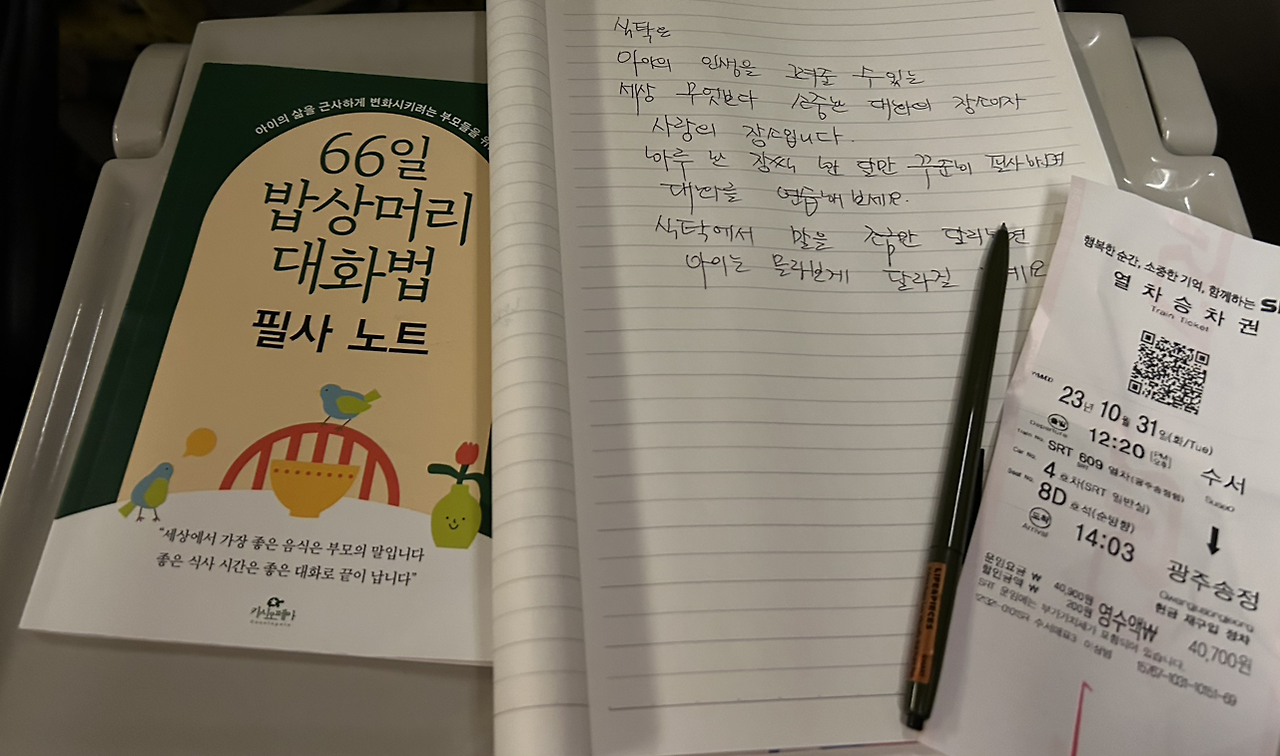 아이의 삶을 근사하게 변화시키려는 부모들을 위
66일
밥상머리
대화법
필사 노트
“세상에서 가장 좋은 음식은 부모의 말입니다
좋은 식사 시간은 좋은 대화로 끝이 납니다”
카시오페아
Cassiopeia
식탁은
아이의 인생을 그려줄 수 있는
세상 무엇보다 소중한 대화의 장소이자
사랑의 장소입니다.
하루 한 장씩 한 달만 꾸준히 필사하면
대화를 연습해 보세요.
식탁에서 말을 조금만 달리하면
아이는 몰라보게 달라질
행복한 순간, 소중한 기억, 함께하는
열차승차권
Train Ticket
23년 10월 31일(화/Tue)
출발 12:20 수서
Departure Suseo
Train No. SRT 609 열차(광주송정행)
Car No. 4 호차(SRT 일반실)
Seat No. 8D 호석(순방향)
도착 14:03 광주송정
Arrival Gwangjusongjeong
현금 재구입 정차
운임요금 ₩ 40,900원
할인금액 ₩ 200원 영수액₩ 40,700원
SRT 운임에는 부가가치세가 포함되어 있습니다.